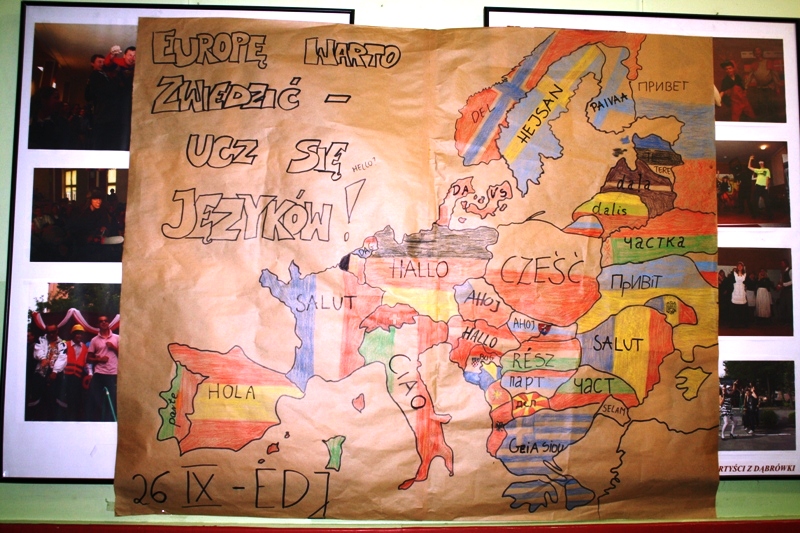 EUROPĘ WARTO
ZWIEDZIĆ -
UCZ SIĘ
HELLO?
JĘZYKÓW!
ПРИВЕТ
HEJSAN
PAIVAA
DEL
TERE
dala
DAVS
dalis
частка
HALLO
CZEŚĆ
ПРИВІТ
SALUT
AHOJ
AHOJ
HALLO
SALUT
RÉSZ
CIAO
парт
част
HOLA
SELAM
GEIA SIOU
26 IX - EDJ
ARTYŚCI Z DĄBRÓWKI